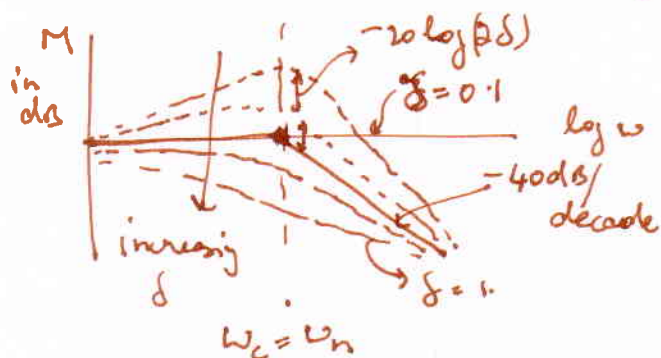 M
in
dB
-20 log(2δ)
δ = 0.1
log ω
-40dB/
decade
increasing
δ
δ = 1.
ω_c = ω_n